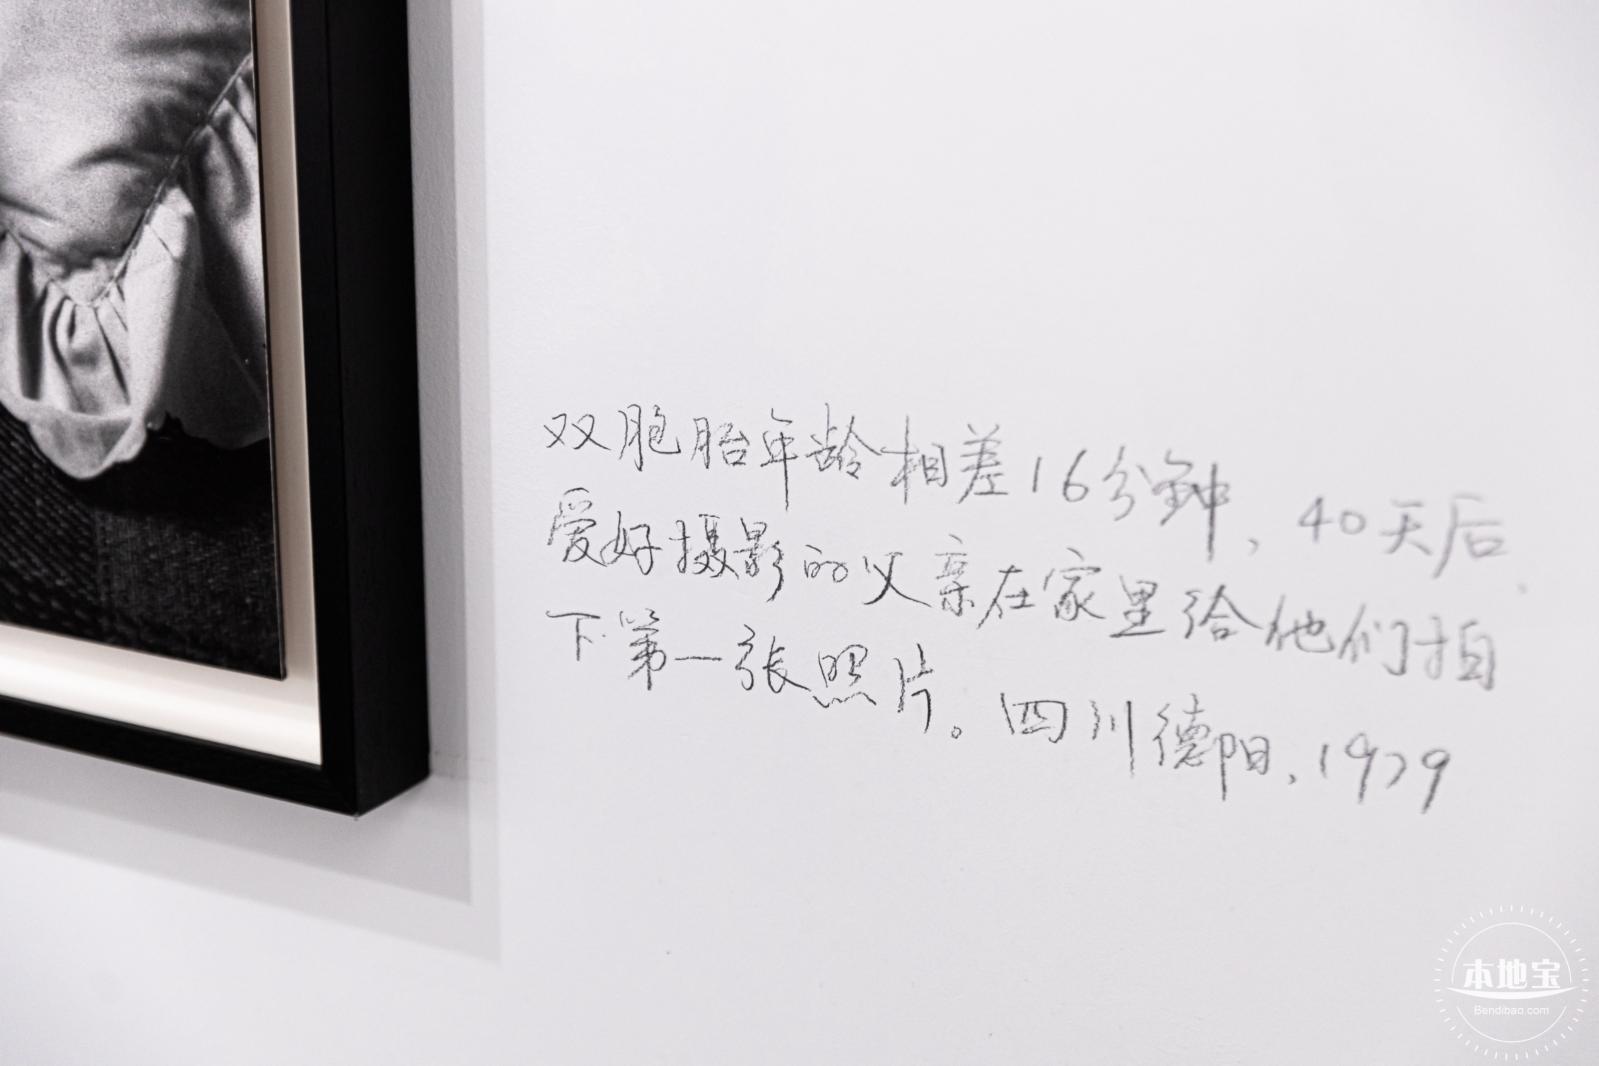 双胞胎年龄相差16分钟，40天后、
爱好摄影的父亲在家里给他们拍
下第一张照片。四川德阳，1979
本地宝
Bendibao.com